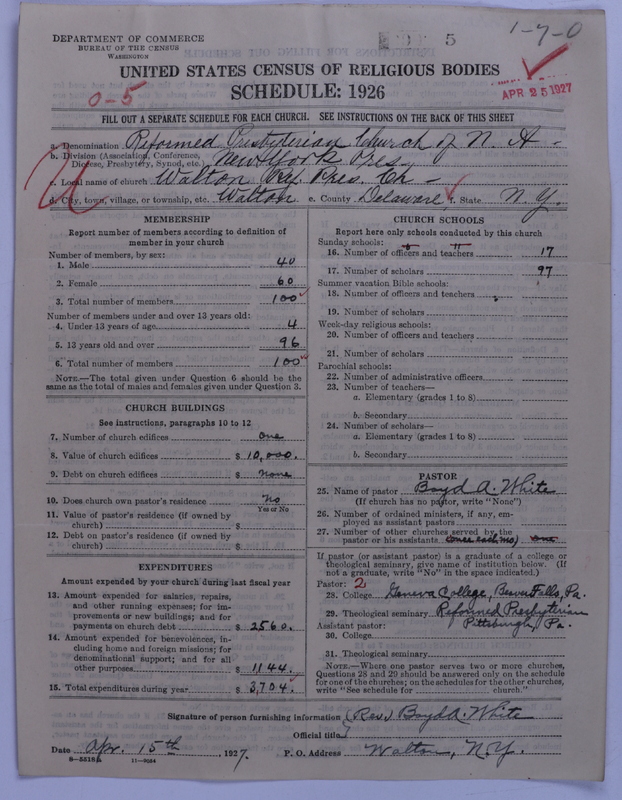 1-7-0
DEPARTMENT OF COMMERCE
BUREAU OF THE CENSUS
WASHINGTON
5
UNITED STATES CENSUS OF RELIGIOUS BODIES
SCHEDULE: 1926
0-5
APR 25 1927
FILL OUT A SEPARATE SCHEDULE FOR EACH CHURCH. SEE INSTRUCTIONS ON THE BACK OF THIS SHEET
a. Denomination Reformed Presbyterian Church of N. A.
b. Division (Association, Conference, Diocese, Presbytery, Synod, etc.) New York Pres.
c. Local name of church Walton Ref. Pres. Ch
d. City, town, village, or township, etc. Walton e. County Delaware f. State N. Y.
MEMBERSHIP
Report number of members according to definition of
member in your church
Number of members, by sex:
1. Male 40
2. Female 60
3. Total number of members 100
Number of members under and over 13 years old:
4. Under 13 years of age 4
5. 13 years old and over 96
6. Total number of members 100
NOTE.—The total given under Question 6 should be the
same as the total of males and females given under Question 3.
CHURCH BUILDINGS
See instructions, paragraphs 10 to 12
7. Number of church edifices one
8. Value of church edifices $ 10,000.
9. Debt on church edifices $ None
10. Does church own pastor's residence No
Yes or No
11. Value of pastor's residence (if owned by
church) $
12. Debt on pastor's residence (if owned by
church) $
EXPENDITURES
Amount expended by your church during last fiscal year
13. Amount expended for salaries, repairs,
and other running expenses; for im-
provements or new buildings; and for
payments on church debt $ 2560.
14. Amount expended for benevolences, in-
cluding home and foreign missions; for
denominational support; and for all
other purposes $ 1144.
15. Total expenditures during year $ 3,704.
CHURCH SCHOOLS
Report here only schools conducted by this church
Sunday schools:
16. Number of officers and teachers 17
17. Number of scholars 97
Summer vacation Bible schools:
18. Number of officers and teachers
19. Number of scholars
Week-day religious schools:
20. Number of officers and teachers
21. Number of scholars
Parochial schools:
22. Number of administrative officers
23. Number of teachers—
a. Elementary (grades 1 to 8)
b. Secondary
24. Number of scholars—
a. Elementary (grades 1 to 8)
b. Secondary
PASTOR
25. Name of pastor Boyd A. White
(If church has no pastor, write "None")
26. Number of ordained ministers, if any, em-
ployed as assistant pastors
27. Number of other churches served by the
pastor or his assistants (once each mo) one
If pastor (or assistant pastor) is a graduate of a college or
theological seminary, give name of institution below. (If
not a graduate, write "No" in the space indicated.)
Pastor: 2
28. College Geneva College, Beaver Falls, Pa.
29. Theological seminary Reformed Presbyterian
Assistant pastor: Pittsburgh, Pa.
30. College
31. Theological seminary
NOTE.—Where one pastor serves two or more churches,
Questions 28 and 29 should be answered only on the schedule
for one of the churches; on the schedules for the other churches,
write "See schedule for church."
Signature of person furnishing information (Rev.) Boyd A. White
Official title
Date Apr. 15th, 1927. P. O. Address Walton, N.Y.
11—9084